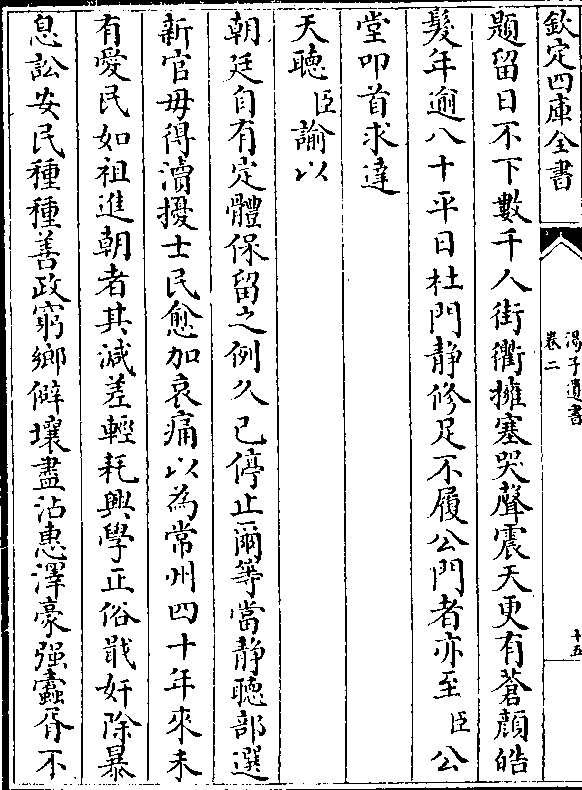 欽定四庫全書
髙子遺書
卷二
十五
題留日不下數千人街衢擁塞哭聲震天更有蒼顔皓
髮年逾八十平日杜門静修足不履公門者亦至臣公
堂叩首求達
天聽臣諭以
朝廷自有定體保留之例久已停止爾等當静聽部選
新官毋得瀆擾士民愈加哀痛以為常州四十年來未
有愛民如祖進朝者其減差輕耗興學正俗戢奸除暴
息訟安民種種善政窮鄉僻壤盡沾惠澤豪强蠧胥不